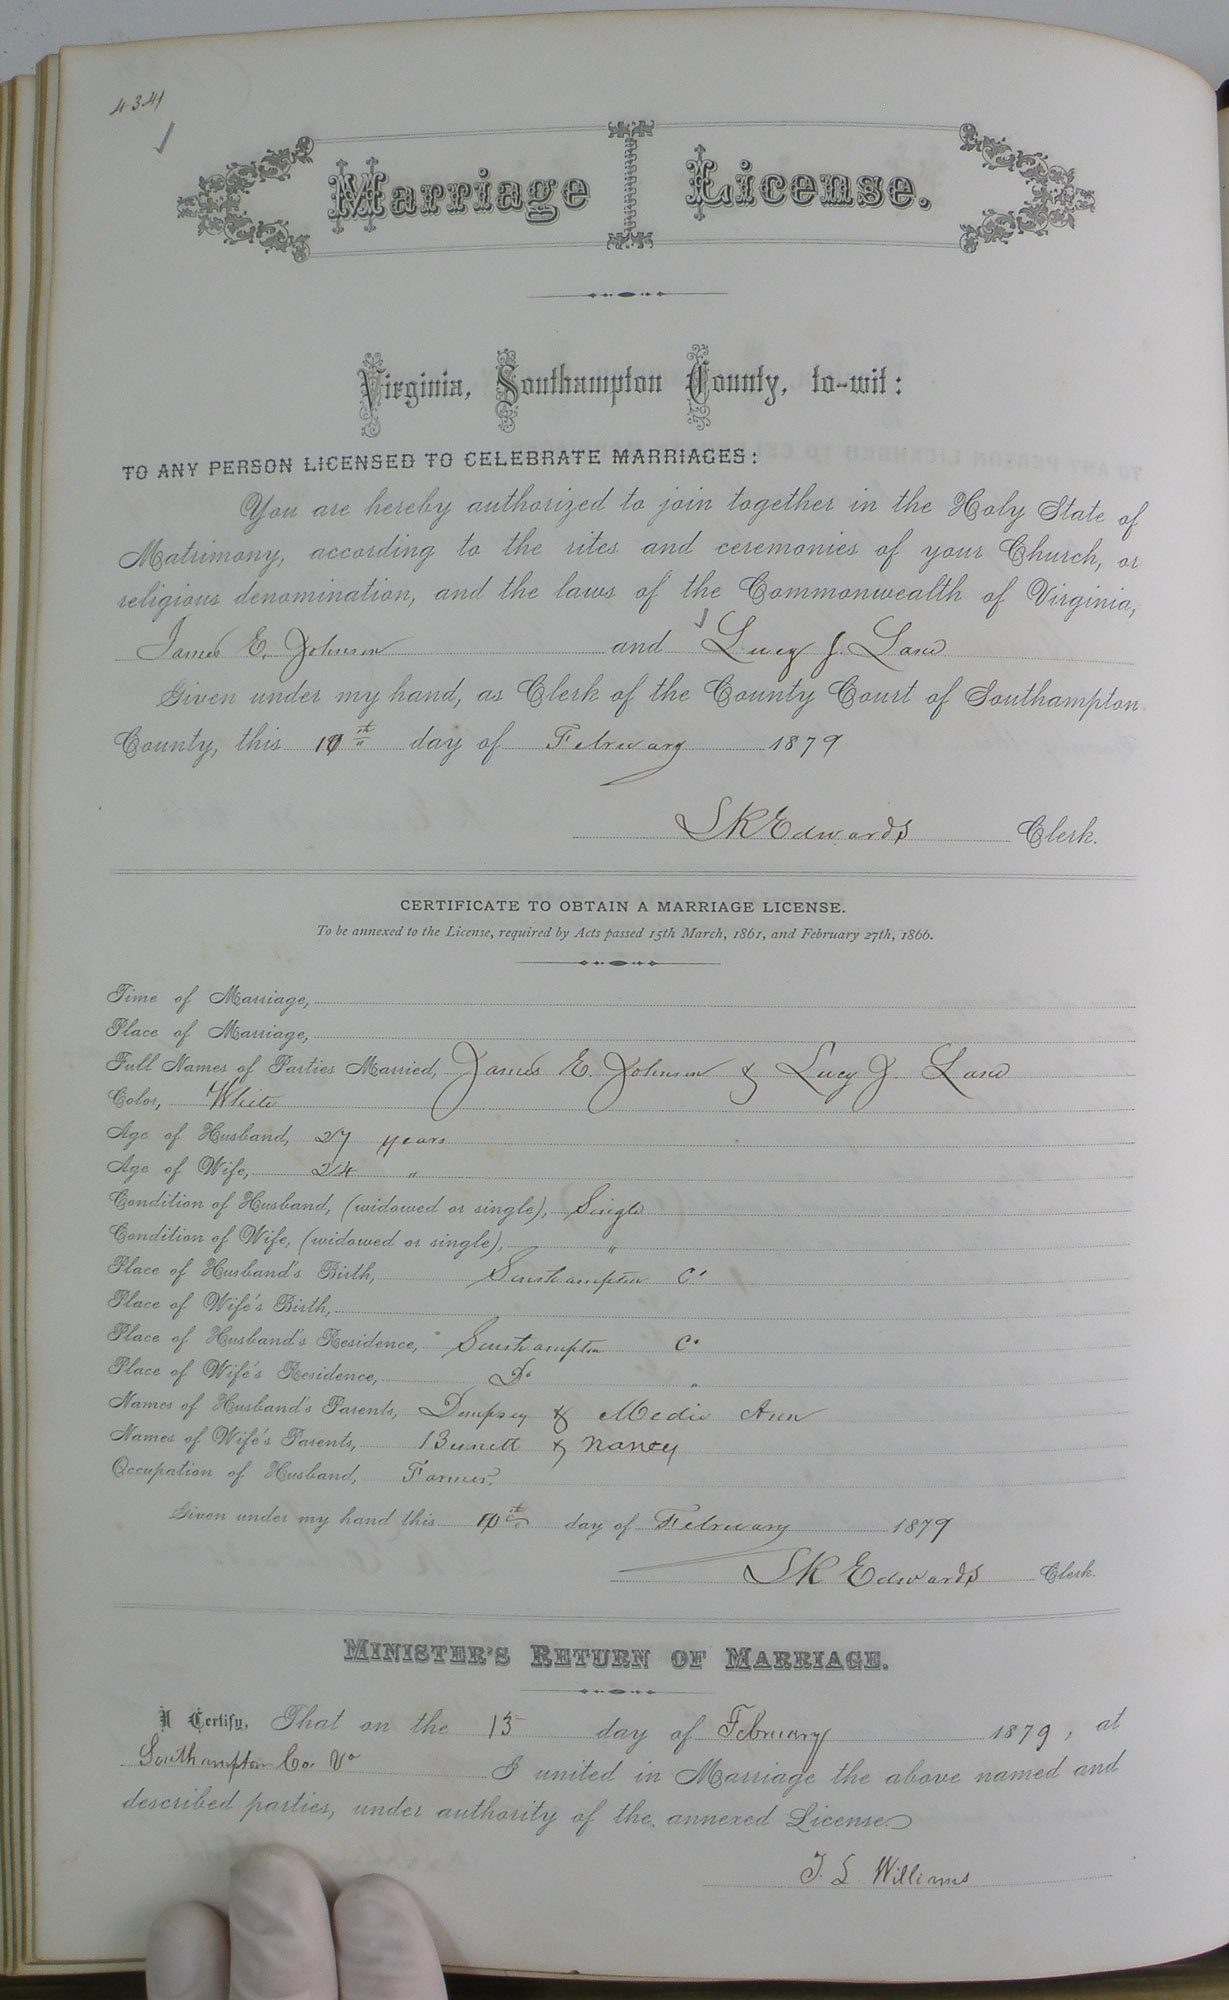 434
Marriage License.
Virginia, Southampton County, to-wit:
TO ANY PERSON LICENSED TO CELEBRATE MARRIAGES:
You are hereby authorized to join together in the Holy State of
Matrimony, according to the rites and ceremonies of your Church, or
religious denomination, and the laws of the Commonwealth of Virginia,
James E. Johnson and Lucy J. Lane
Given under my hand, as Clerk of the County Court of Southampton
County, this 10th day of February 1879
S K Edwards Clerk.
CERTIFICATE TO OBTAIN A MARRIAGE LICENSE.
To be annexed to the License, required by Acts passed 15th March, 1861, and February 27th, 1866.
Time of Marriage,
Place of Marriage,
Full Names of Parties Married, James E. Johnson & Lucy J. Lane
Color, White
Age of Husband, 27 years
Age of Wife, 24 "
Condition of Husband, (widowed or single), Single
Condition of Wife, (widowed or single), "
Place of Husband's Birth, Southampton Co
Place of Wife's Birth,
Place of Husband's Residence, Southampton Co
Place of Wife's Residence, Do "
Names of Husband's Parents, Dempsey & Medie Ann
Names of Wife's Parents, & Nancy
Occupation of Husband, Farmer.
Given under my hand this 10th day of February 1879
S K Edwards Clerk.
MINISTER'S RETURN OF MARRIAGE.
I Certify, That on the 13 day of February 1879, at
Southampton Co. Va I united in Marriage the above named and
described parties, under authority of the annexed License
J. L Williams